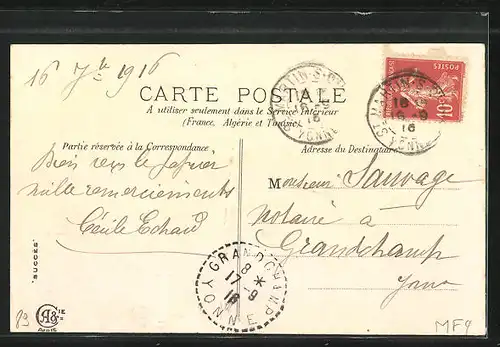 16 7bre 1916
CARTE POSTALE
A utiliser seulement dans le Service Intérieur
(France, Algérie et Tunisie)
Partie réservée à la Correspondance
Adresse du Destinataire
Bien reçu le papier
mille remerciements
Cécile Echard
Monsieur Sauvage
notaire à
Grandchamp
Yonne
POSTES
10
ST MARTIN-S-
16 -9
16
YONNE
GRANDCHAMP
8 *
17 -9
16
YONNE
"SUCCÈS"
MF4